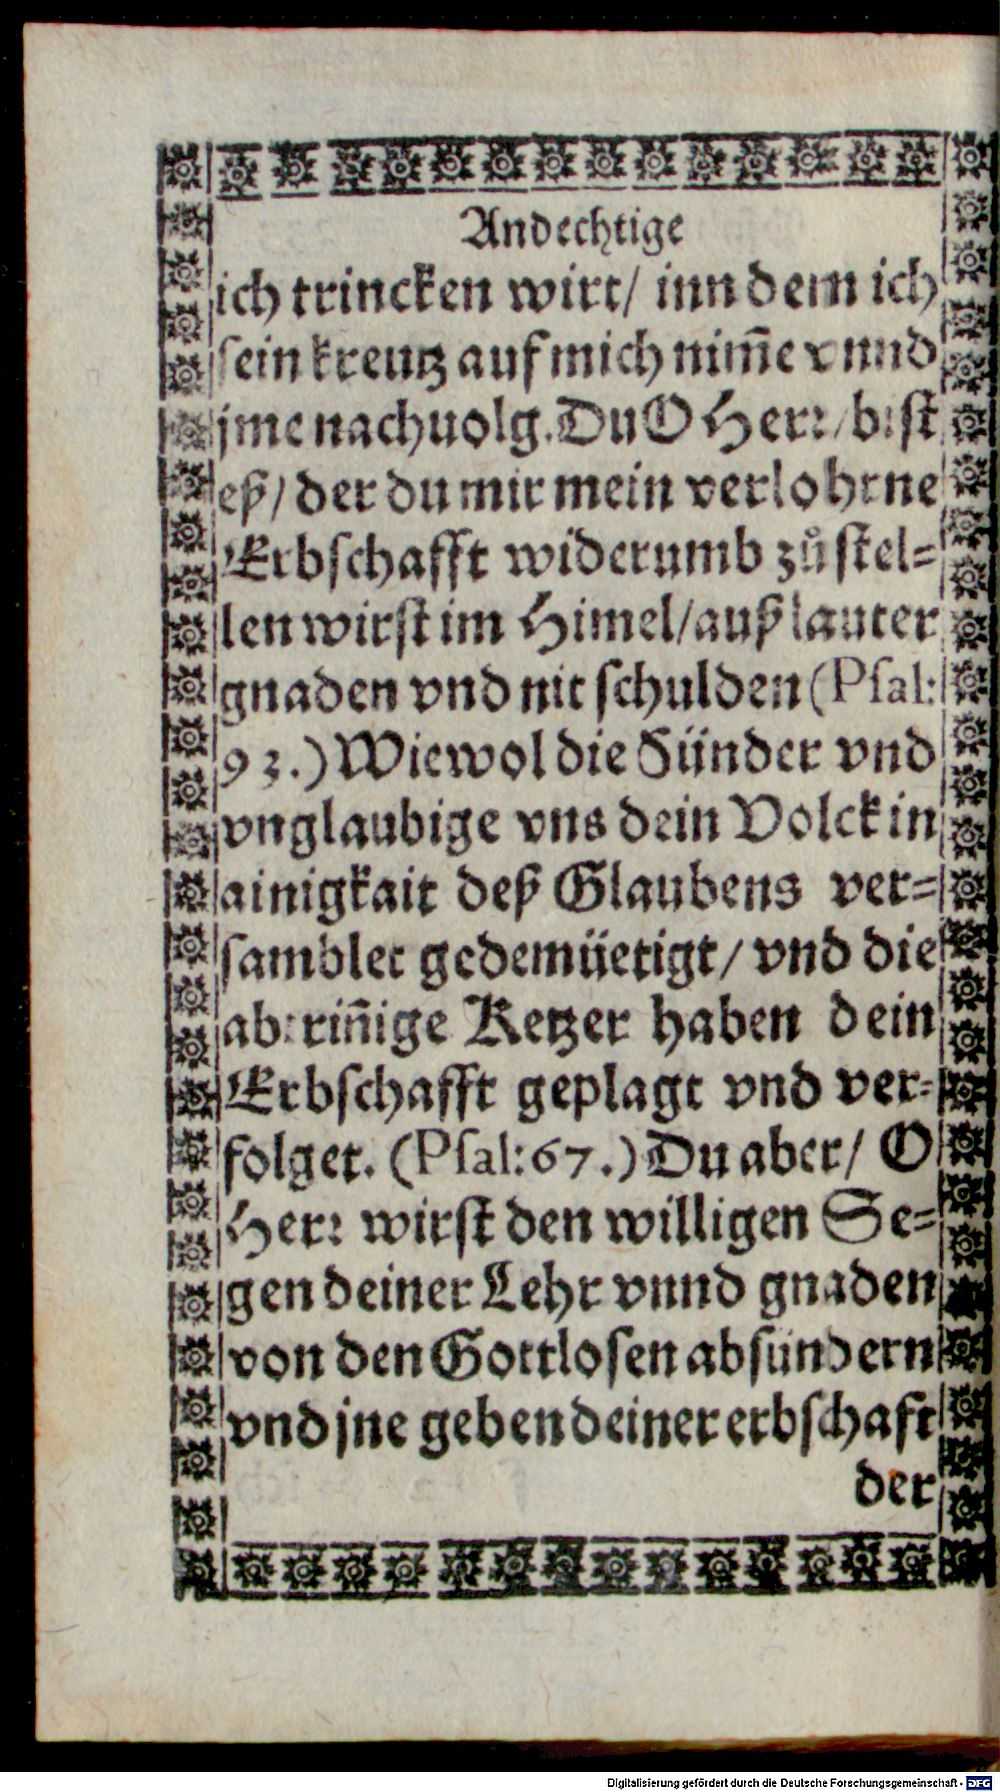 Andechtige
ich trincken wirt/ inn dem ich
sein kreutz auf mich nim̃e vnnd
jme nachuolg. Du O Herr/ bist
eß/ der du mir mein verlohrne
Erbschafft widerumb zů stel=
len wirst im Himel/ auß lauter
gnaden vnd nit schulden (Psal:
93.) Wiewol die Sünder vnd
vnglaubige vns dein Volck in
ainigkait deß Glaubens ver=
samblet gedemüetigt/ vnd die
abtriñige Ketzer haben dein
Erbschafft geplagt vnd ver=
folget. (Psal: 67.) Du aber/ O
Herr wirst den willigen Se=
gen deiner Lehr vnnd gnaden
von den Gottlosen absündern
vnd jne geben deiner erbschaft
der
Digitalisierung gefördert durch die Deutsche Forschungsgemeinschaft - DFG